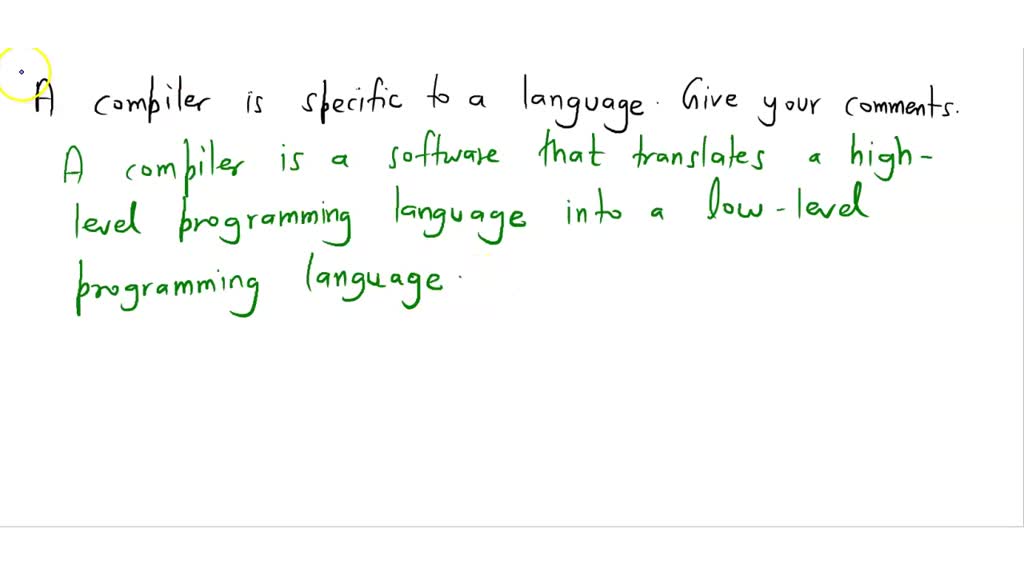 A compiler is specific to a language. Give your comments.
A compiler is a software that translates a high-
level programming language into a low-level
programming language.